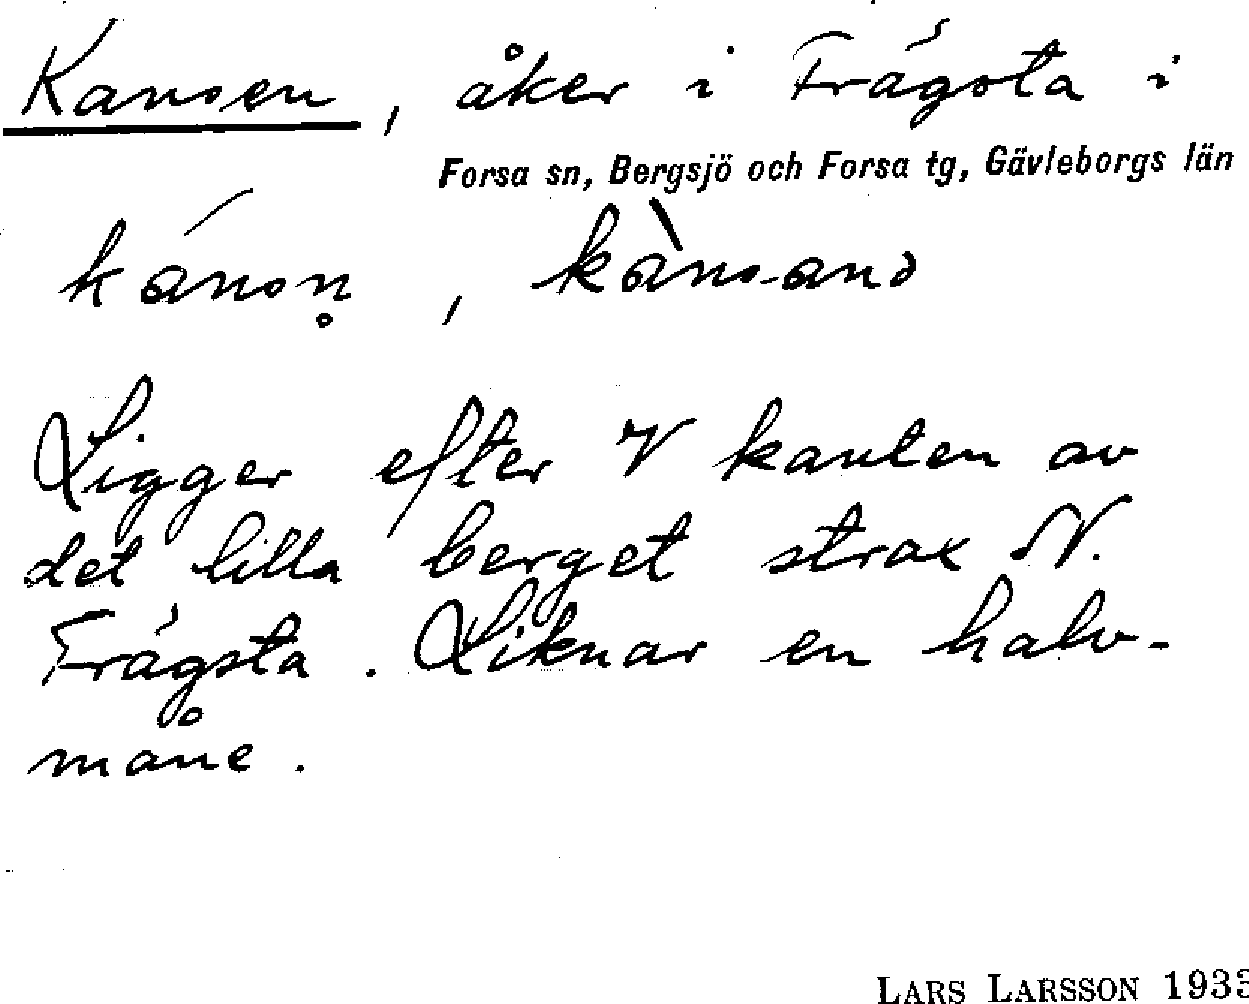 Kansen, åker i Frägsta i
Forsa sn, Bergsjö och Forsa tg, Gävleborgs län
Ligger efter V kanten av
det lilla berget strax N.
Frägsta. Liknar en halv-
måne.
LARS LARSSON